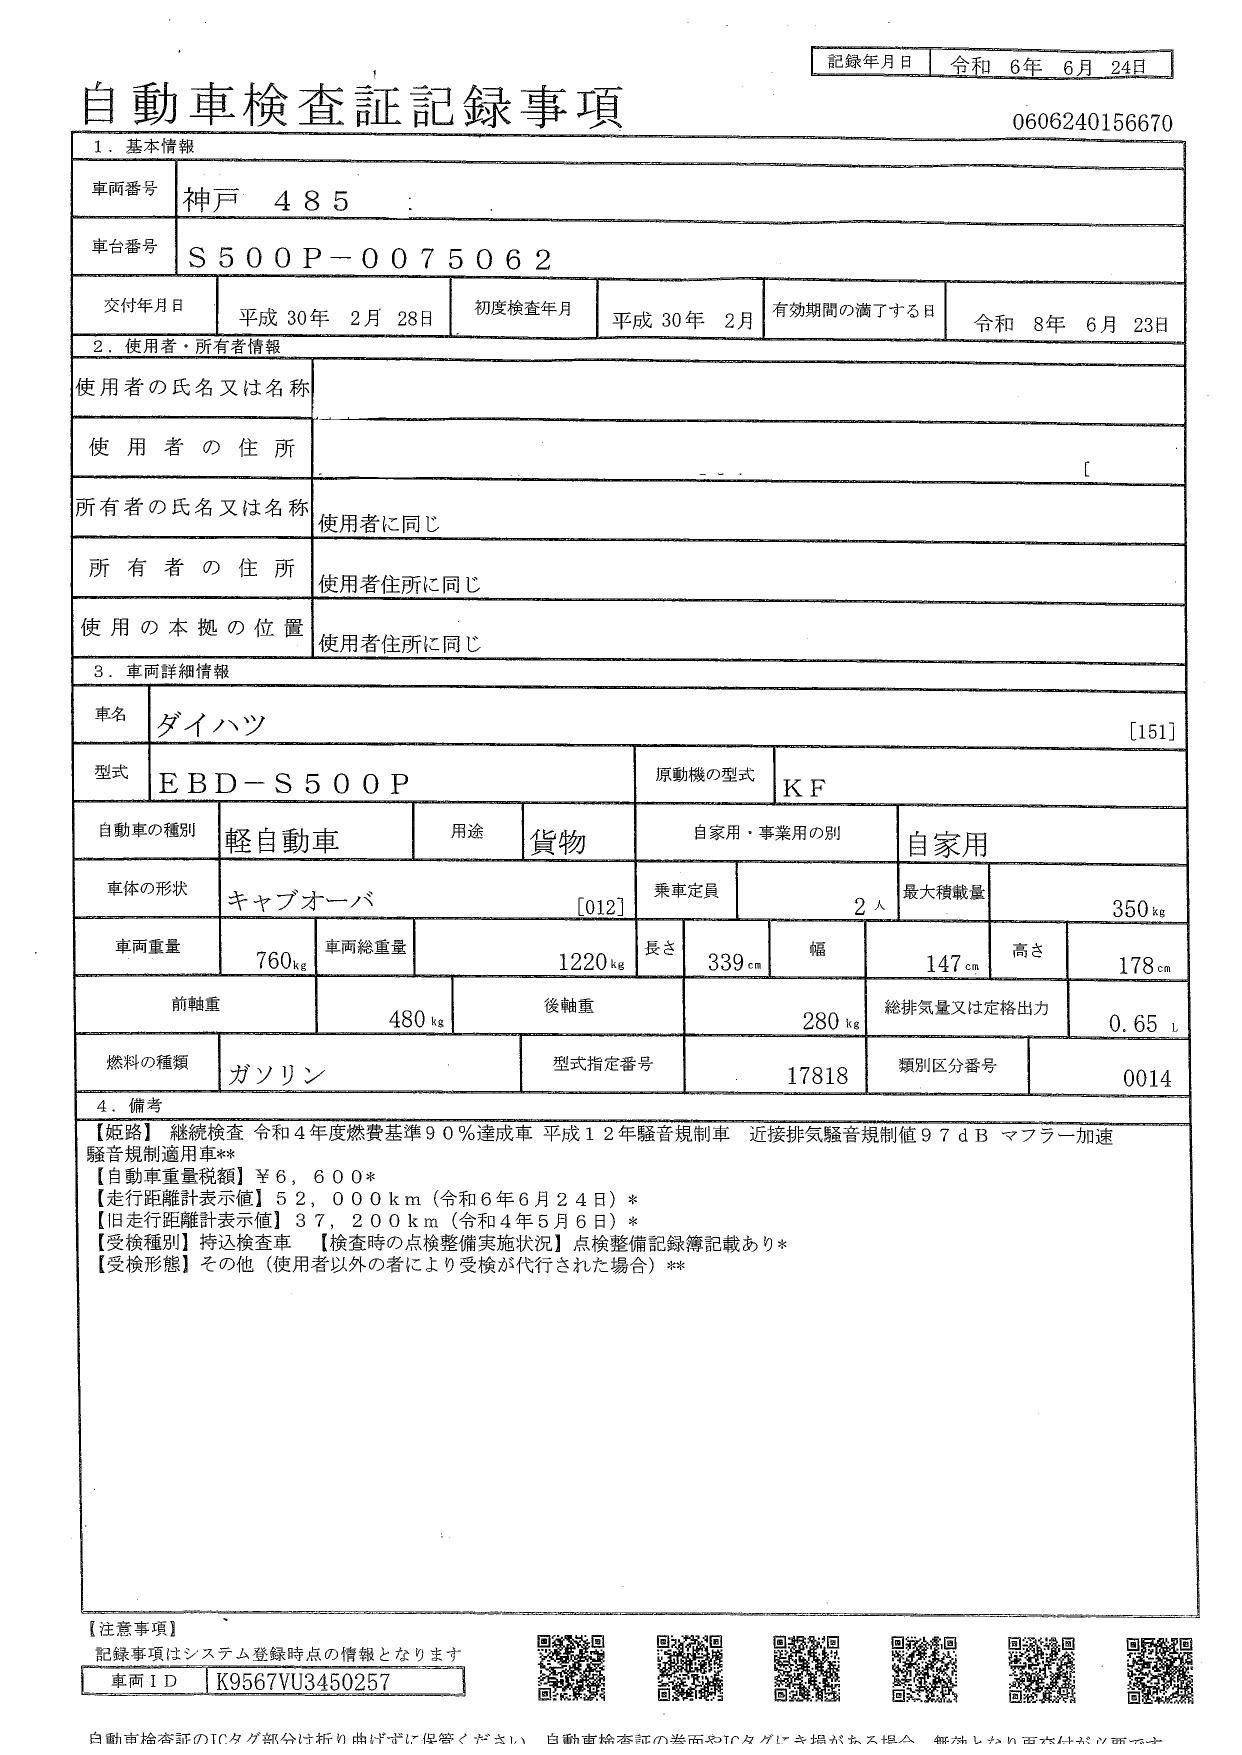 記録年月日 令和 6年 6月 24日
自動車検査証記録事項
0606240156670
1．基本情報
車両番号 神戸 ４８５
車台番号 Ｓ５００Ｐ－００７５０６２
交付年月日 平成 30年 2月 28日 初度検査年月 平成 30年 2月 有効期間の満了する日 令和 8年 6月 23日
2．使用者・所有者情報
使用者の氏名又は名称
使用者の住所 [
所有者の氏名又は名称 使用者に同じ
所有者の住所 使用者住所に同じ
使用の本拠の位置 使用者住所に同じ
3．車両詳細情報
車名 ダイハツ [151]
型式 ＥＢＤ－Ｓ５００Ｐ 原動機の型式 ＫＦ
自動車の種別 軽自動車 用途 貨物 自家用・事業用の別 自家用
車体の形状 キャブオーバ [012] 乗車定員 2人 最大積載量 350kg
車両重量 760kg 車両総重量 1220kg 長さ 339cm 幅 147cm 高さ 178cm
前軸重 480kg 後軸重 280kg 総排気量又は定格出力 0.65 L
燃料の種類 ガソリン 型式指定番号 17818 類別区分番号 0014
4．備考
【姫路】 継続検査 令和４年度燃費基準９０％達成車 平成１２年騒音規制車 近接排気騒音規制値９７ｄＢ マフラー加速
騒音規制適用車**
【自動車重量税額】￥６，６００*
【走行距離計表示値】５２，０００ｋｍ（令和６年６月２４日）*
【旧走行距離計表示値】３７，２００ｋｍ（令和４年５月６日）*
【受検種別】持込検査車 【検査時の点検整備実施状況】点検整備記録簿記載あり*
【受検形態】その他（使用者以外の者により受検が代行された場合）**
【注意事項】
記録事項はシステム登録時点の情報となります
車両ＩＤ K9567VU3450257
自動車検査証のICタグ部分は折り曲げずに保管ください。自動車検査証の券面やICタグにき損がある場合、無効となり再交付が必要です。